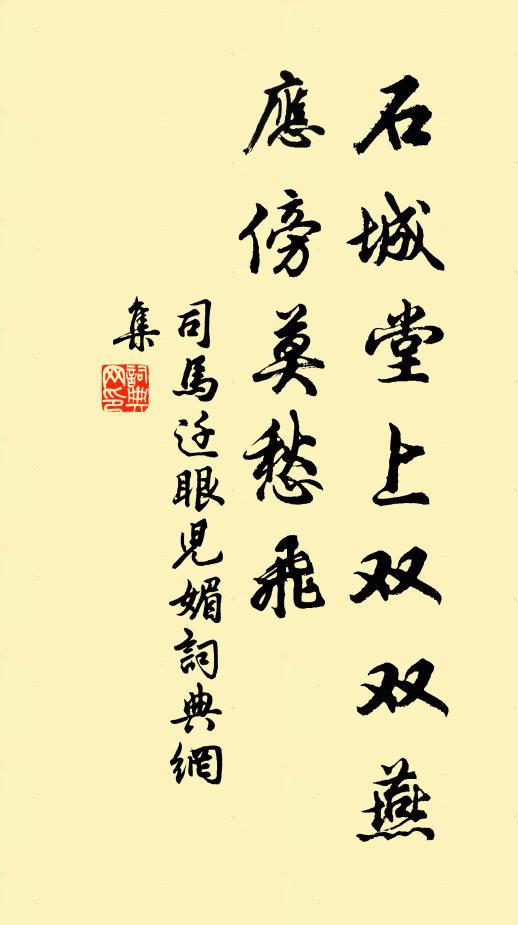 石城堂上双双燕
應傍莫愁飛
司馬迁眼児媚詞典網
集
詞典网印